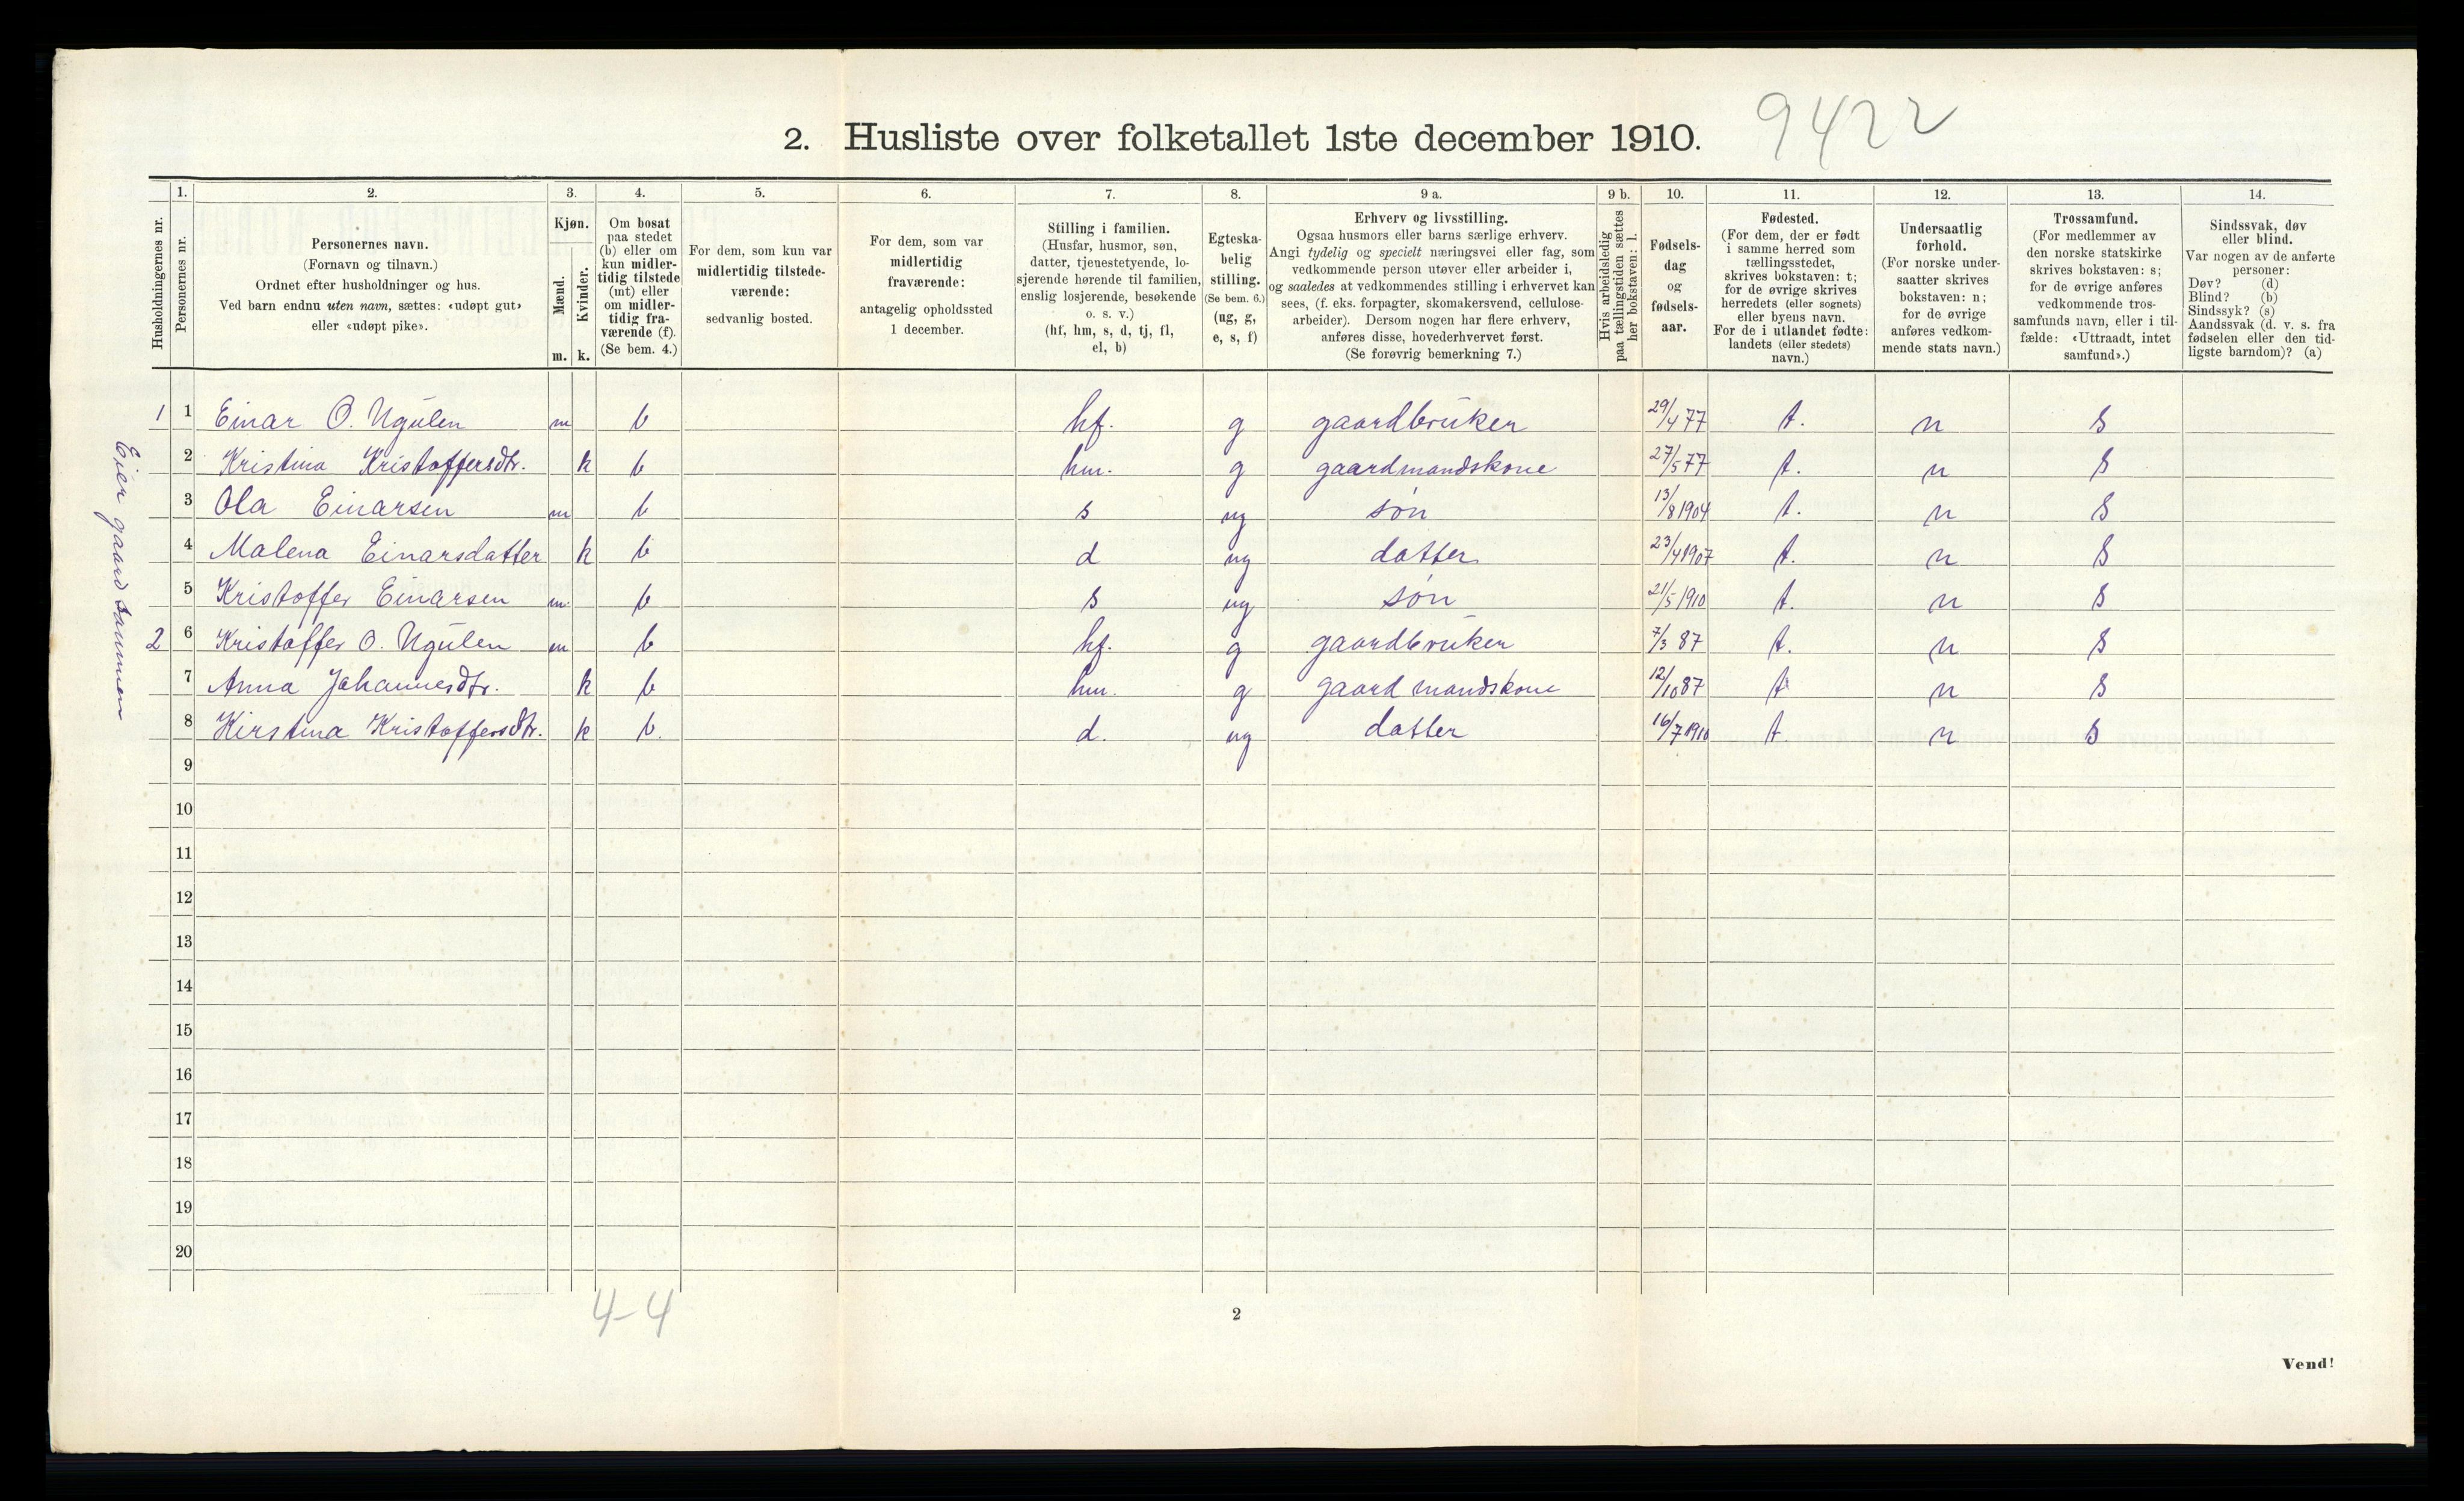 2. Husliste over folketallet 1ste december 1910.
9422
Husholdningernes nr.
1.
Personernes nr.
2.
Personernes navn.
(Fornavn og tilnavn.)
Ordnet efter husholdninger og hus.
Ved barn endnu uten navn, sættes: «udøpt gut»
eller «udøpt pike».
3.
Kjøn.
Mænd.
Kvinder.
m. k.
4.
Om bosat
paa stedet
(b) eller om
kun midler-
tidig tilstede
(mt) eller
om midler-
tidig fra-
værende (f).
(Se bem. 4.)
5.
For dem, som kun var
midlertidig tilstede-
værende:
sedvanlig bosted.
6.
For dem, som var
midlertidig
fraværende:
antagelig opholdssted
1 december.
7.
Stilling i familien.
(Husfar, husmor, søn,
datter, tjenestetyende, lo-
sjerende hørende til familien,
enslig losjerende, besøkende
o. s. v.)
(hf, hm, s, d, tj, fl,
el, b)
8.
Egteska-
belig
stilling.
(Se bem. 6.)
(ug, g,
e, s, f)
9 a.
Erhverv og livsstilling.
Ogsaa husmors eller barns særlige erhverv.
Angi tydelig og specielt næringsvei eller fag, som
vedkommende person utøver eller arbeider i,
og saaledes at vedkommendes stilling i erhvervet kan
sees, (f. eks. forpagter, skomakersvend, cellulose-
arbeider). Dersom nogen har flere erhverv,
anføres disse, hovederhvervet først.
(Se forøvrig bemerkning 7.)
9 b.
Hvis arbeidsledig
paa tællingstiden sættes
her bokstaven: l.
10.
Fødsels-
dag
og
fødsels-
aar.
11.
Fødested.
(For dem, der er født
i samme herred som
tællingsstedet,
skrives bokstaven: t;
for de øvrige skrives
herredets (eller sognets)
eller byens navn.
For de i utlandet fødte:
landets (eller stedets)
navn.)
12.
Undersaatlig
forhold.
(For norske under-
saatter skrives
bokstaven: n;
for de øvrige
anføres vedkom-
mende stats navn.)
13.
Trossamfund.
(For medlemmer av
den norske statskirke
skrives bokstaven: s;
for de øvrige anføres
vedkommende tros-
samfunds navn, eller i til-
fælde: «Uttraadt, intet
samfund».)
14.
Sindssvak, døv
eller blind.
Var nogen av de anførte
personer:
Døv? (d)
Blind? (b)
Sindssyk? (s)
Aandssvak (d. v. s. fra
fødselen eller den tid-
ligste barndom)? (a)
1 1 Einar O. Ugulen m b hf. g gaardbruker 29/4 77 t. n s
2 Kristina Kristoffersdtr. k b hm. g gaardmandskone 27/5 77 t. n s
3 Ola Einarsen m b s ug søn 13/8 1904 t. n s
4 Malena Einarsdatter k b d ug datter 23/4 1907 t. n s
5 Kristoffer Einarsen m. b s ug søn 21/5 1910 t. n s
2 6 Kristoffer O. Ugulen m b hf. g gaardbruker 7/3 87 t. n s
7 Anna Johannesdtr. k b hm. g gaardmandskone 12/10 87 t n s
8 Kirstina Kristoffersdtr. k b. d. ug datter 16/7 1910 t. n s
9
10
11
12
13
14
15
16
17
18
19
20
Eier gaard sammen
4-4
2
Vend!